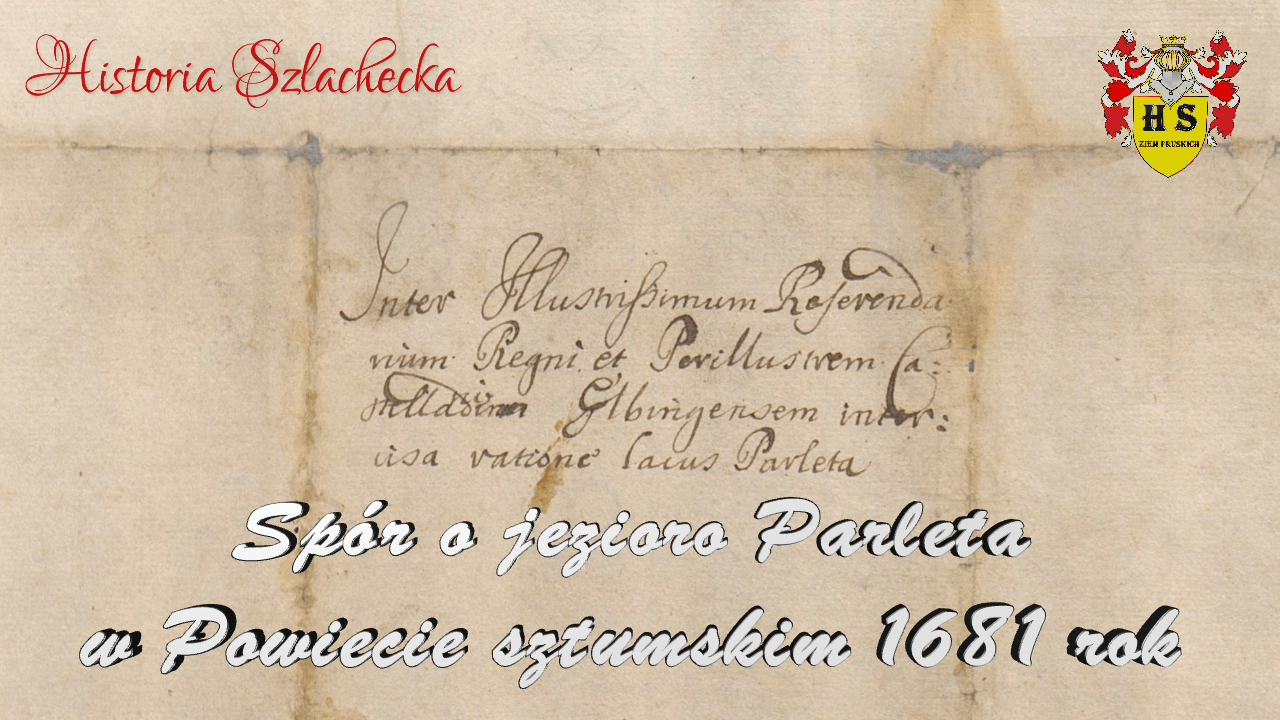 Historia Szlachecka
H S
ZIEM PRUSKICH
Inter Illustrissimum Referenda
rium Regni et Perillustrem Ca:
Elbingensem inter:
cisa ratione lacus Parleta
Spór o jezioro Parleta
w Powiecie sztumskim 1681 rok